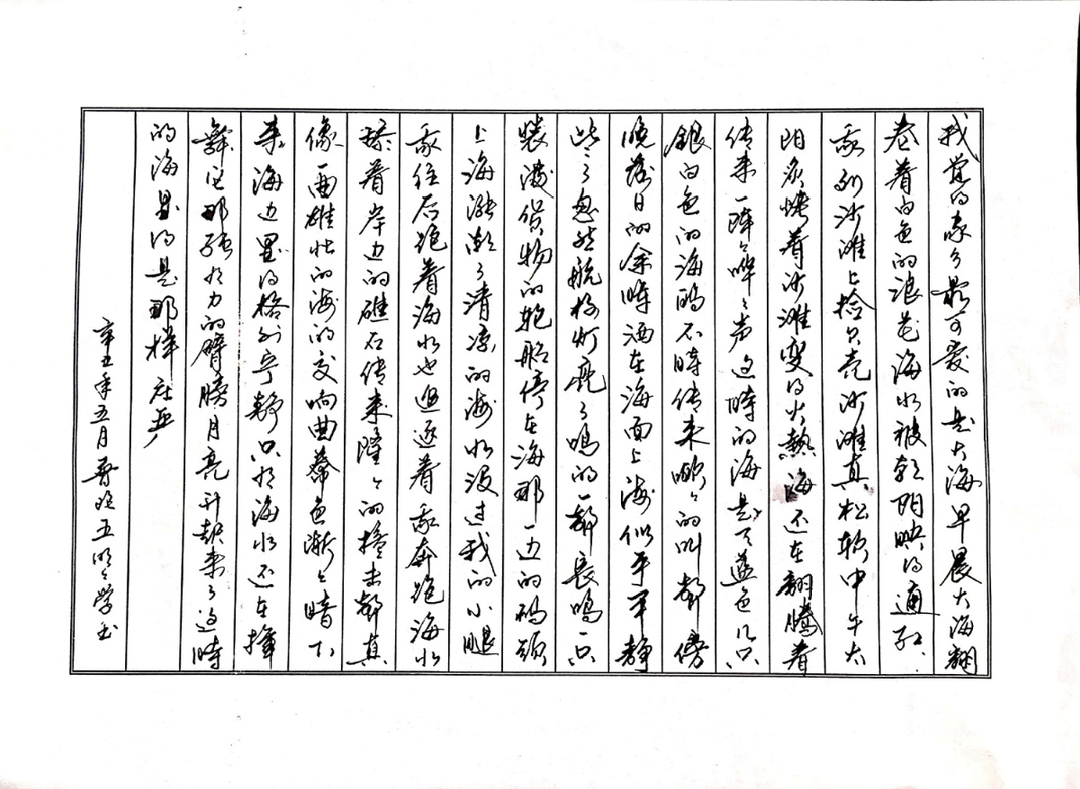 我觉得家乡最可爱的是大海早晨大海翻
卷着白色的浪花海水被朝阳映的通红
我到沙滩上捡贝壳沙滩真松软中午太
阳炙烤着沙滩变得火热海还在翻腾着
传来一阵々哗々声这时的海是天蓝色几只
银白色的海鸥不時传来啾々的叫声傍
晚落日的余晖洒在海面上海似乎平静
些了忽然航标灯亮了鸣的一声长鸣一只
装满货物的轮船停在海那一边的码头
上海涨潮了清凉的海水没过我的小腿
我往后跑着海水也追逐着我奔跑海水
撩着岸边的礁石传来隆々的撞击声真
像一曲雄壮的海的交响曲暮色渐々暗下
来海边显得格外宁静只有海水还在挥
舞它那强有力的臂膀月亮升起来了这時
的海显得是那样庄严
辛丑年五月 明々学书